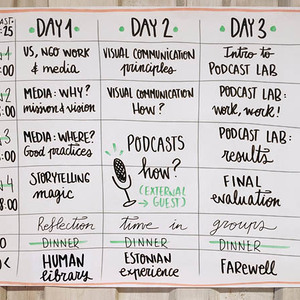 DAY 1 DAY 2 DAY 3
:25
1 US, NGO WORK & media
VISUAL COMMUNICATION principles
Intro to PODCAST LAB
:00
2 MEDIA: WHY? mission & vision
VISUAL COMMUNICATION HOW?
PODCAST LAB: work, work!
:00
3 MEDIA: WHERE? Good practices
PODCASTS how?
(EXTERNAL GUEST)
PODCAST LAB: results
:00
4 STORYTELLING magic
FINAL evaluation
8:00
Reflection time in groups
DINNER DINNER DINNER
HUMAN library
ESTONIAN experience
FAREWELL